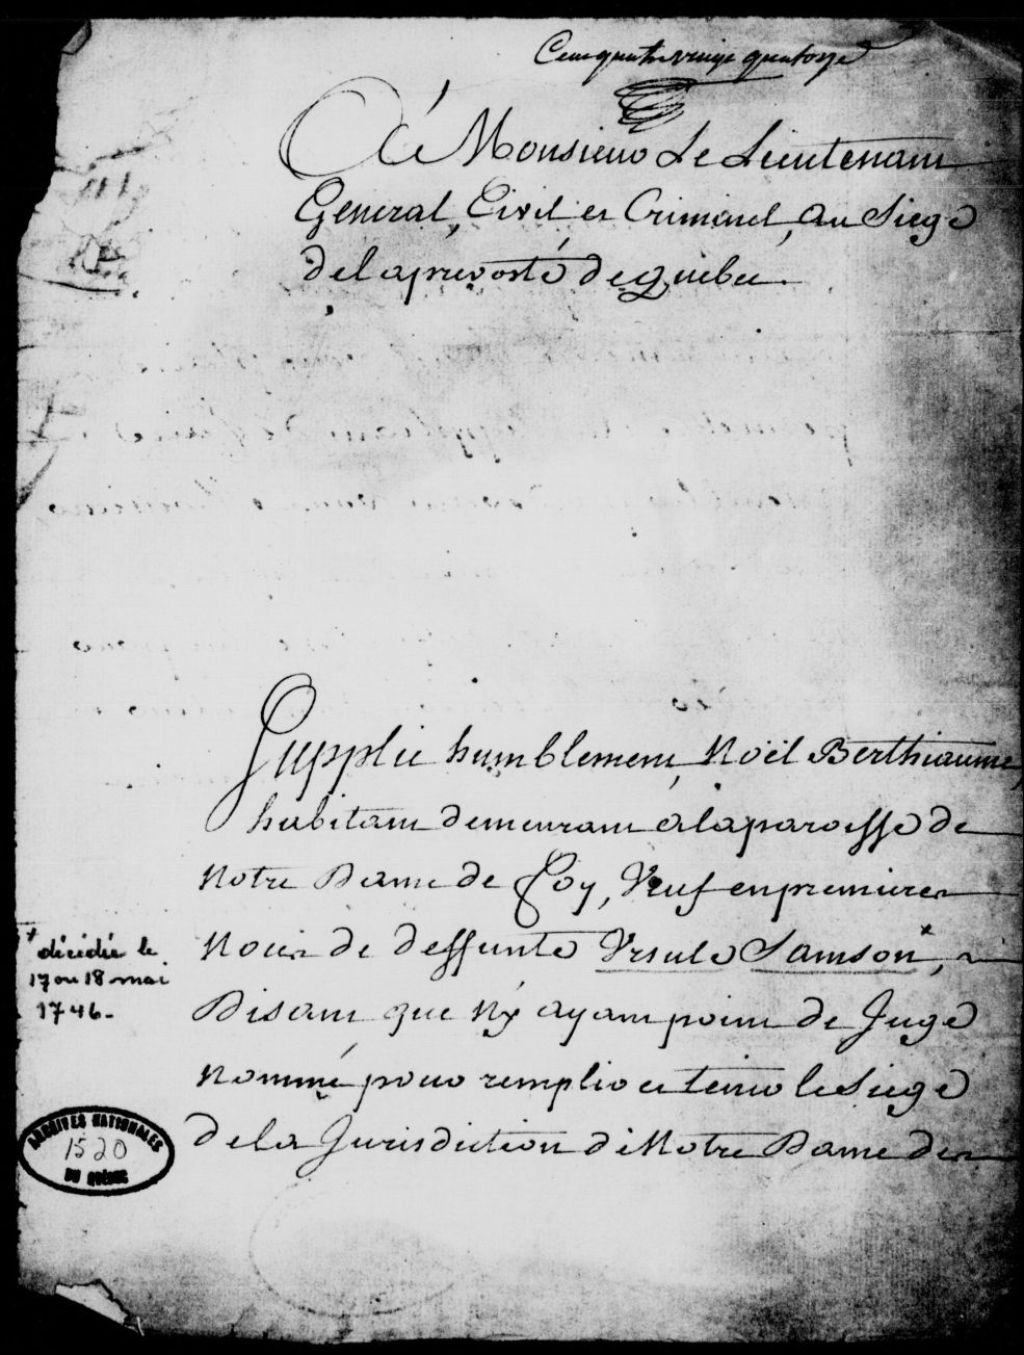 Cent quatre vingt quatorze
A Monsieur Le Lieutenant
General, Civil et Criminel, au Siege
de la prevosté de quebec.
Supplie humblement, Noël Berthiaume,
habitant demeurant a la paroisse de
Notre Dame de Foy, Veuf en premieres
Noces de deffunte Ursule Samson*,
Disant que N'y ayant point de Juge
Nommé pour remplir et tenir le Siege
de la Jurisdiction de Notre Dame des
* décédée le
17 ou 18 mai
1746.-
ARCHIVES NATIONALES
1520
DU QUÉBEC